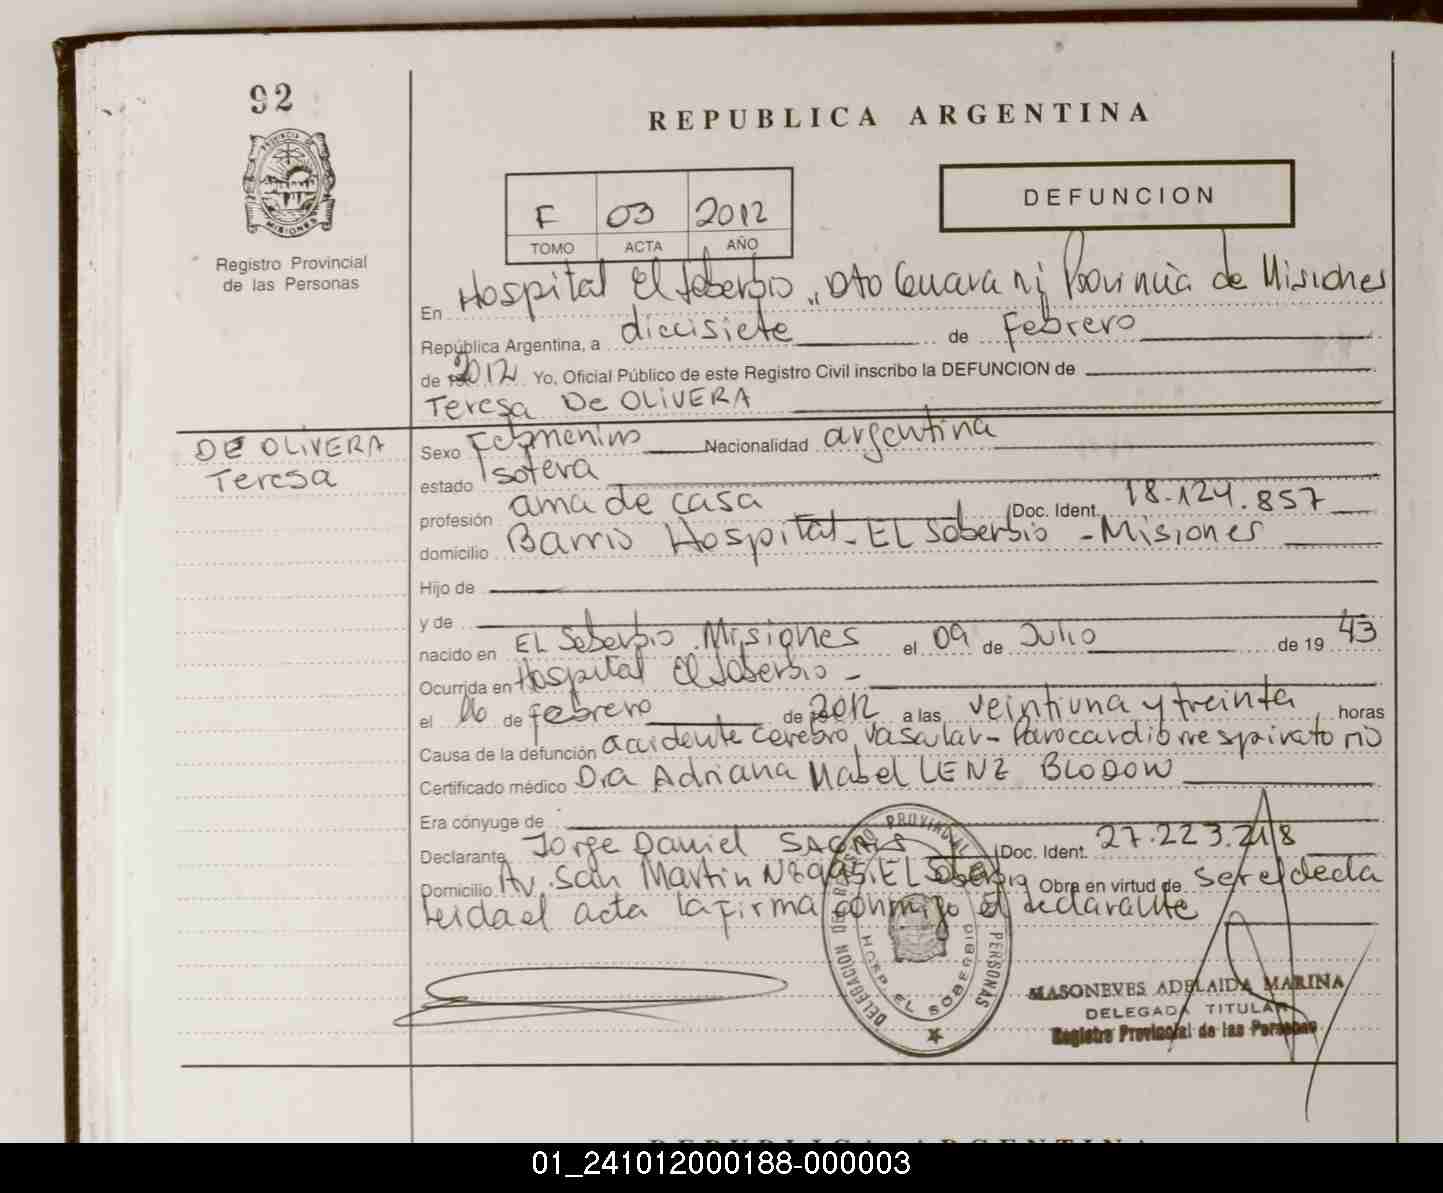 92
REPUBLICA ARGENTINA
PROVINCIA DE
MISIONES
F 03 2012
TOMO ACTA AÑO
DEFUNCION
Registro Provincial
de las Personas
En Hospital El Soberbio, Dto Guarani Provincia de Misiones
República Argentina, a diecisiete de Febrero
de 2012 Yo, Oficial Público de este Registro Civil inscribo la DEFUNCION de
Teresa De OLIVERA
DE OLIVERA
Teresa
Sexo Femenino Nacionalidad argentina
estado soltera
profesión ama de casa Doc. Ident. 18.124.857
domicilio Barrio Hospital - EL Soberbio - Misiones
Hijo de
y de
nacido en EL Soberbio Misiones el 09 de Julio de 19 43
Ocurrida en Hospital El Soberbio -
el 16 de febrero de 2012 a las veintiuna y treinta horas
Causa de la defunción accidente cerebro vascular - Parocardiorrespiratorio
Certificado médico Dra Adriana Mabel LENZ BLODOW
Era cónyuge de
Declarante Jorge Daniel Doc. Ident. 27.223.218
Domicilio Av. San Martin Nº 995. EL Soberbio Obra en virtud de ser el decla
Leida el acta la firma conmigo el declarante
DELEGACION DE REGISTRO PROVINCIAL PERSONAS
HOSP. EL SOBERBIO
MASONEVES ADELAIDA MARINA
DELEGADA TITULAR
Registro Provincial de las Personas
REPUBLICA ARGENTINA
01_241012000188-000003